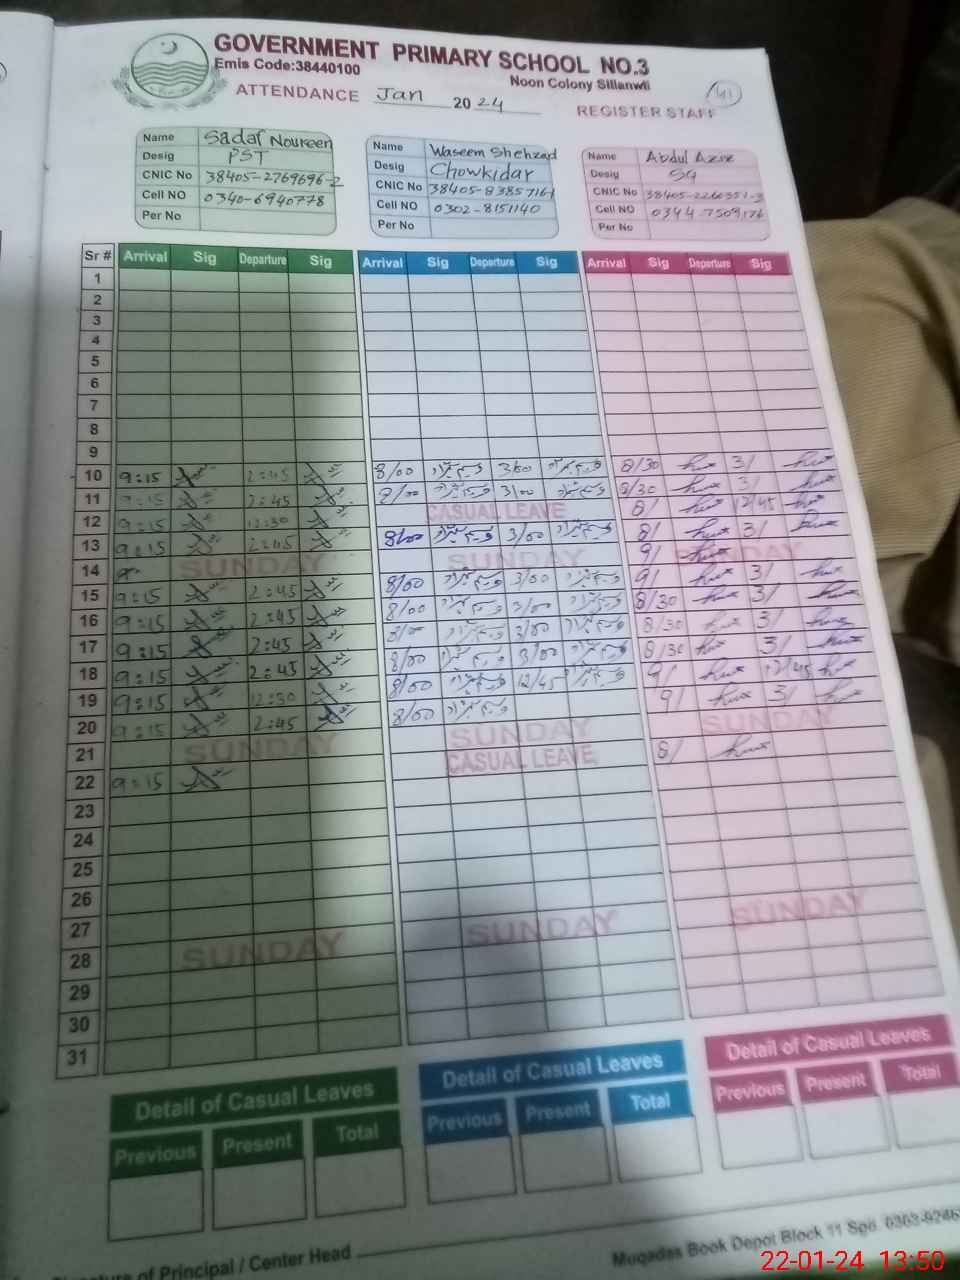 GOVERNMENT PRIMARY SCHOOL NO.3
Emis Code:38440100
Noon Colony Sillanwli
41
ATTENDANCE Jan 2024
REGISTER STAFF
Name Sadaf Noureen
Desig PST
CNIC No 38405-2769696-2
Cell NO 0340-6940778
Per No
Name Waseem Shehzad
Desig Chowkidar
CNIC No 38405-8385716-1
Cell NO 0302-8151140
Per No
Name Abdul Aziz
Desig
CNIC No
Cell NO 0344-7509176
Per No
Sr # Arrival Sig Departure Sig Arrival Sig Departure Sig Arrival Sig Departure Sig
1
2
3
4
5
6
7
8
9
10 9:15 2:45 8/00 3/00 8/30 3/
11 9:15 2:45 8/00 3/00 8/30 3/
12 9:15 12:30 CASUAL LEAVE 8/ 12/45
13 9:15 2:45 8/00 3/00 8/ 3/
14 SUNDAY SUNDAY 9/ SUNDAY
15 9:15 2:45 8/00 3/00 9/ 3/
16 9:15 2:45 8/00 3/00 8/30 3/
17 9:15 2:45 8/00 3/00 8/30 3/
18 9:15 2:45 8/00 3/00 8/30 3/
19 9:15 12:30 8/00 12/45 9/ 12/45
20 9:15 2:45 8/00 9/ 3/
21 SUNDAY SUNDAY SUNDAY
22 9:15 CASUAL LEAVE 8/
23
24
25
26
27
28 SUNDAY SUNDAY SUNDAY
29
30
31
Detail of Casual Leaves Detail of Casual Leaves Detail of Casual Leaves
Previous Present Total Previous Present Total Previous Present Total
of Principal / Center Head
Muqadas Book Depot Block 11 Sgd. 0303-9246
22-01-24 13:50